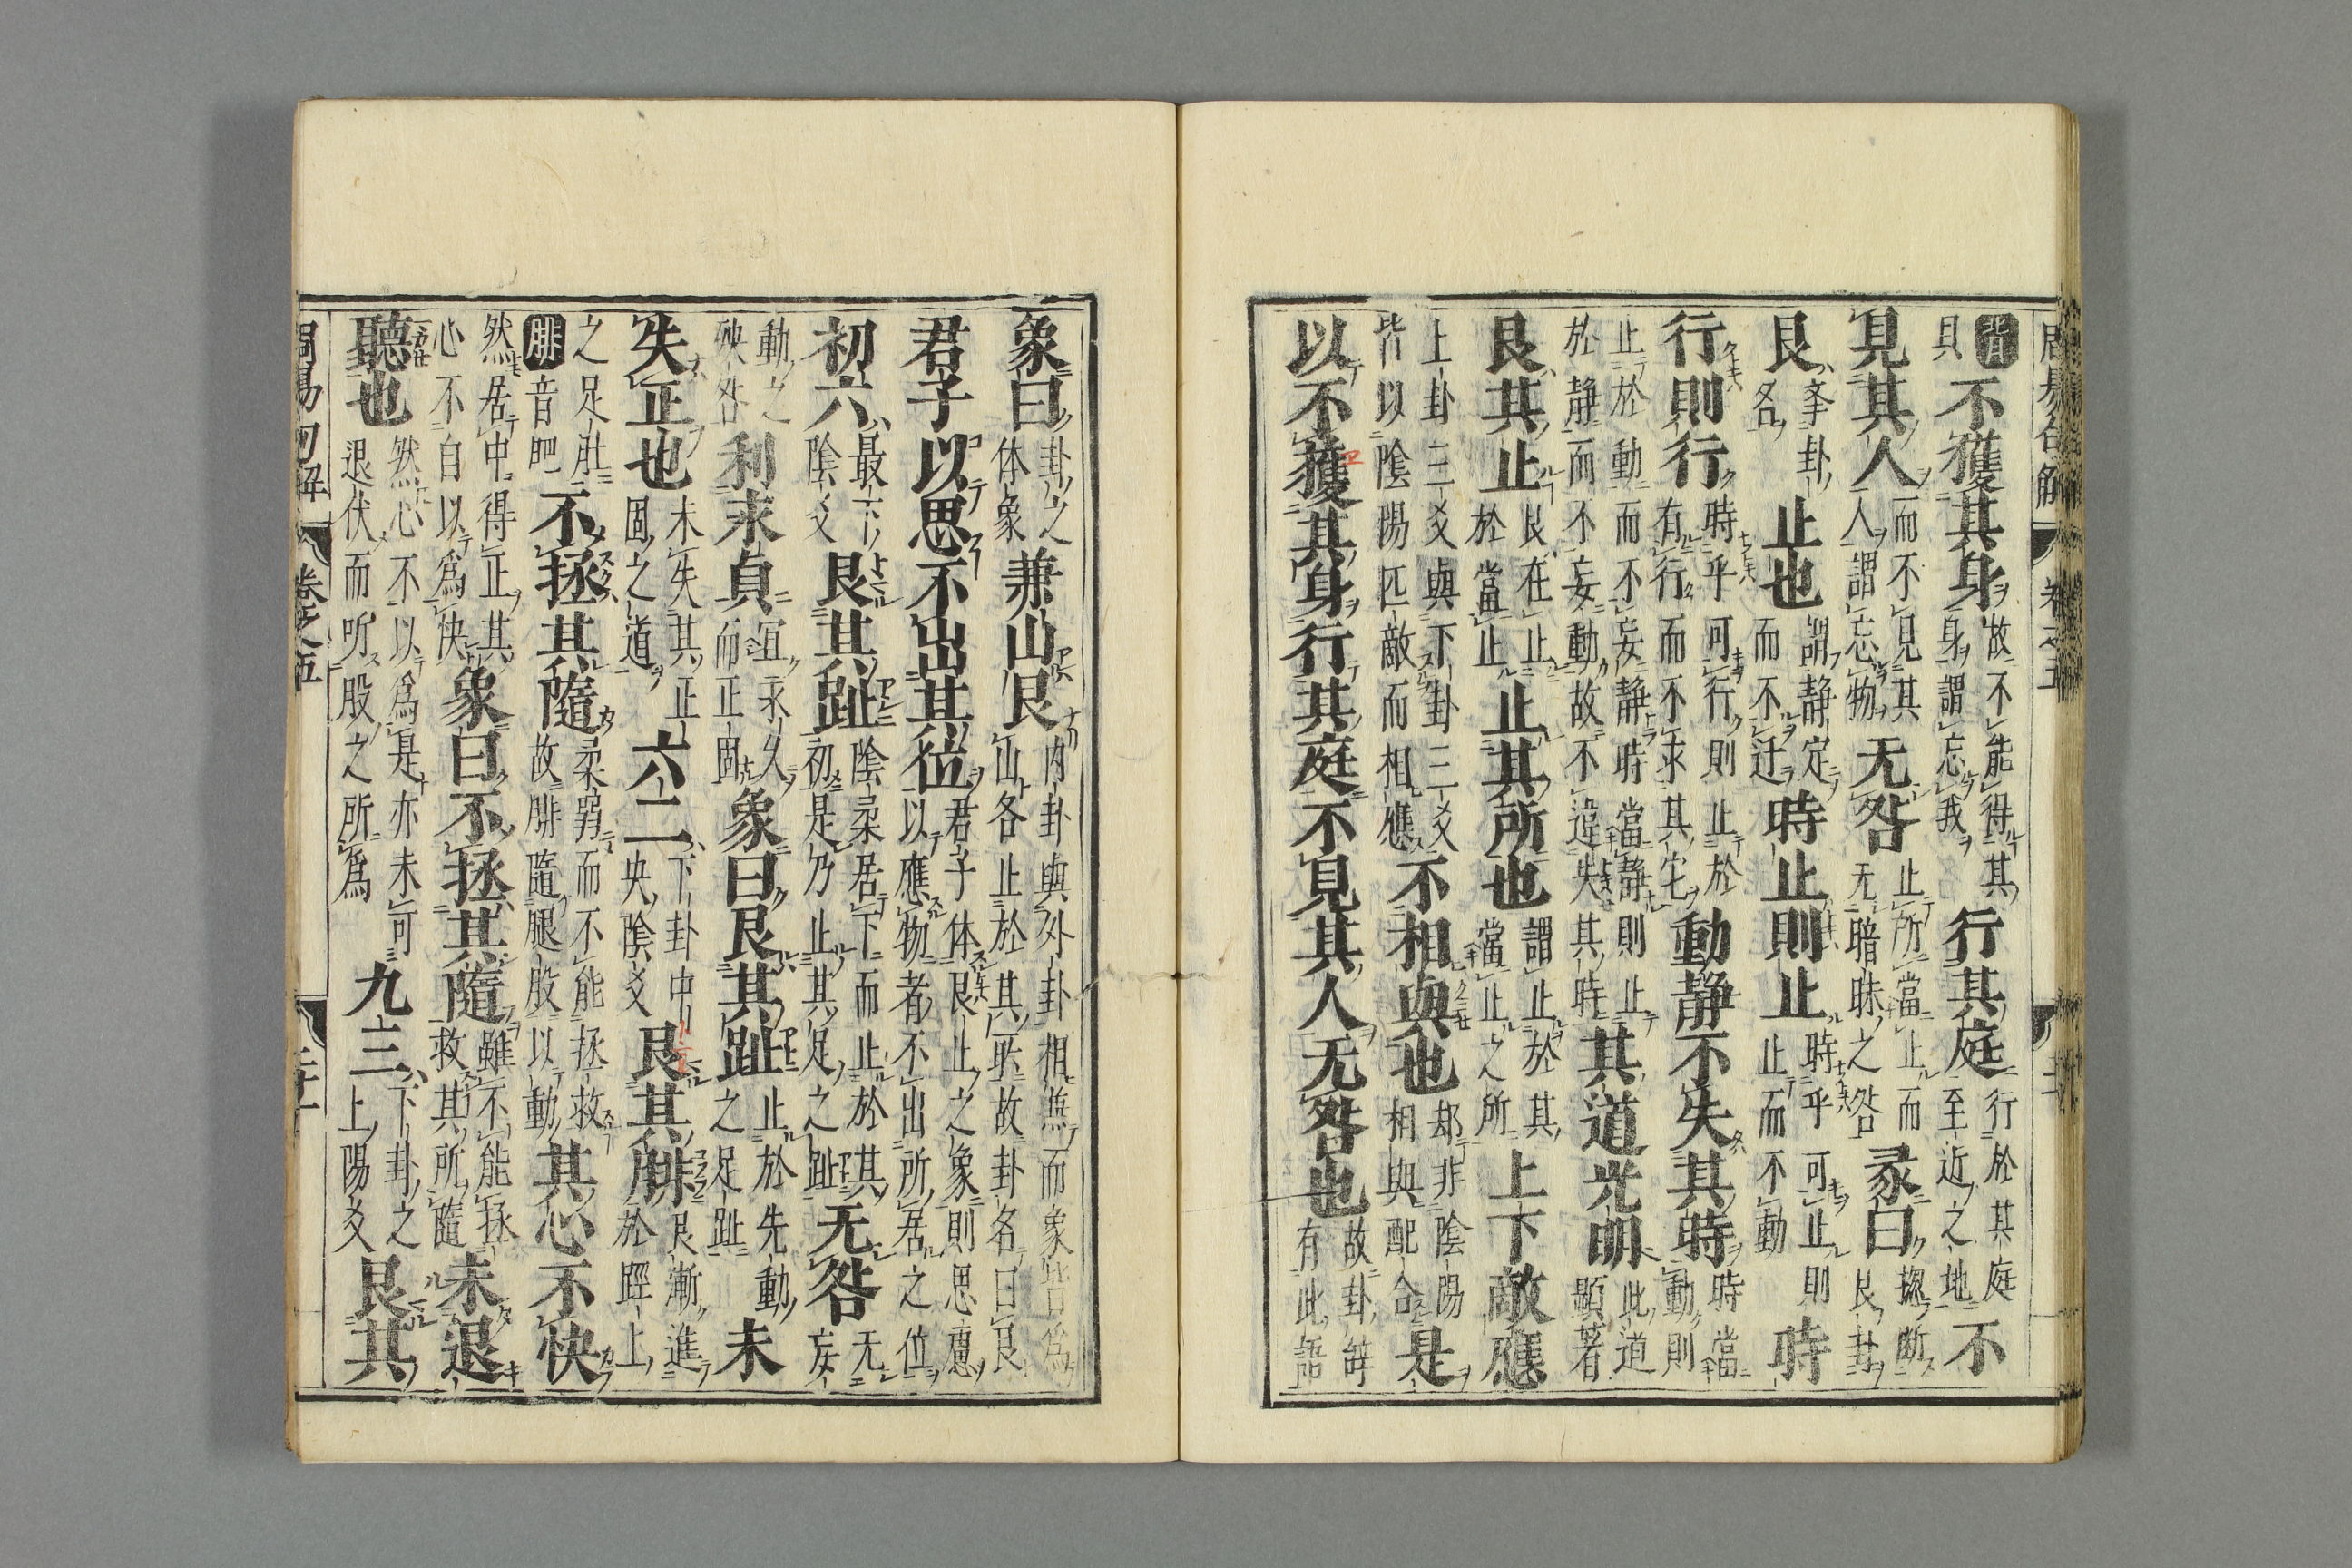 背貝不獲其身故不能得其身謂忘我行其庭行於其庭至近之地不
見其人而不見其人謂忘物无咎止所當止而无暗昧之咎彖曰揔断艮卦
艮夅卦名止也謂静定而不迁時止則止時乎可止則止而不動時
行則行時乎可行則有行而不求其宅動静不失其時時當動則
止於動而不妄静時當静則止於静而不妄動故不違失其時其道光明此道顯著
艮其止艮在止於當止止其所也謂止於其當止之所上下敵應
上卦三爻與下卦三爻皆以陰陽匹敵而相應不相與也却非陰陽相與配合是
以不獲其身行其庭不見其人无咎也故卦辞有此語
象曰卦之体象兼山艮内卦與外卦相無而象皆為山各止於其所故卦名曰艮
君子以思不出其位君子体艮止之象則思慮以應物者不出所居之位
初六最下陰爻艮其趾陰柔居下而止於其初是乃止其足之趾无咎无妄
動之殃咎利永貞宜永久而正固象曰艮其趾止於先動之足趾未
失正也未失其正固之道六二下卦中央陰爻艮其腓艮漸進於脛上
之足肚腓音肥不拯其隨柔弱而不能拯救故腓隨腿股以動其心不快
然居中得正其心不自以為快象曰不拯其隨雖不能拯救其所隨未退
聽也然心不以為是亦未可退伏而听股之所為九三下卦之上陽爻艮其
周易句解 卷之五 二十一